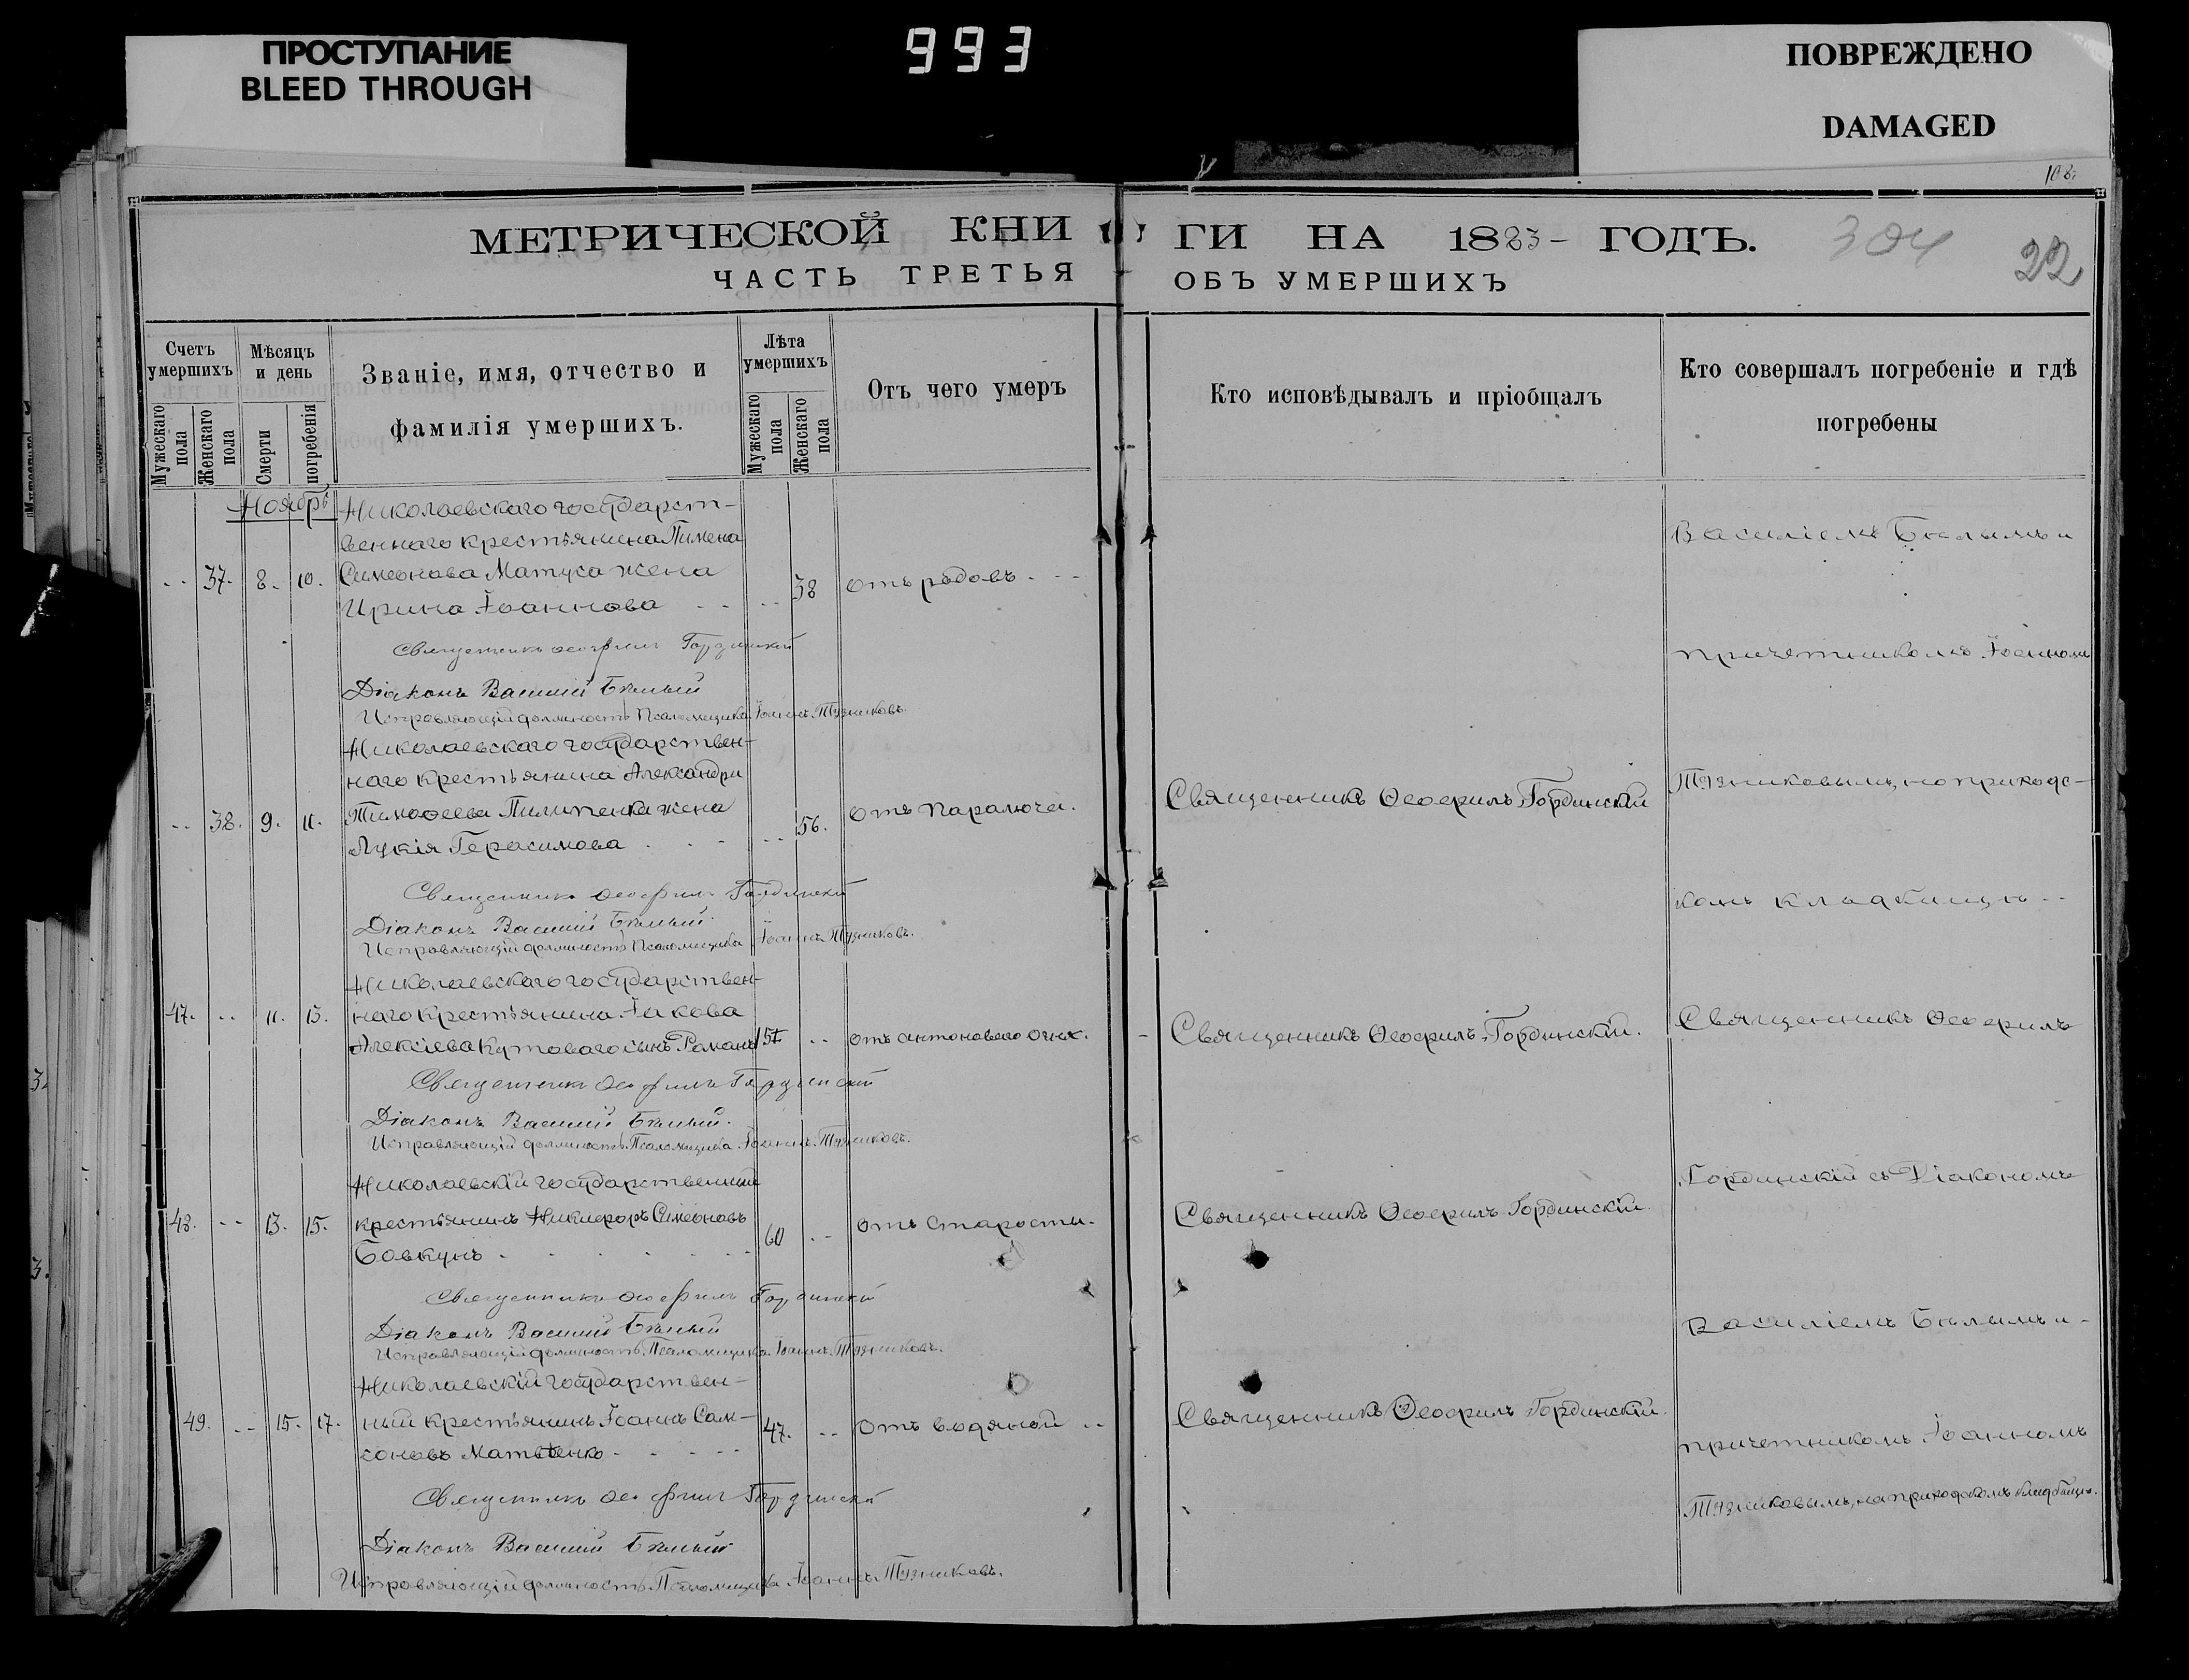 ПРОСТУПАНИЕ
BLEED THROUGH
993
ПОВРЕЖДЕНО
DAMAGED
108.
МЕТРИЧЕСКОЙ КНИГИ НА 1883 ГОДЪ.
304
22
ЧАСТЬ ТРЕТЬЯ ОБЪ УМЕРШИХЪ
Счетъ умершихъ
Мужескаго пола
Женскаго пола
Мѣсяцъ и день
Смерти
погребенія
Званіе, имя, отчество и
фамилія умершихъ.
Лѣта умершихъ
Мужескаго пола
Женскаго пола
Отъ чего умеръ
Кто исповѣдывалъ и пріобщалъ
Кто совершалъ погребеніе и гдѣ
погребены
Ноябрь
Николаевскаго государст-
веннаго крестьянина Пимена
37. 8. 10. Симеонова Матуса жена 38 отъ родовъ.
Ирина Іоаннова
Василіемъ Бѣлымъ и
Священникъ Ѳеофилъ Гординскій
причетникомъ Іоанномъ
Діаконъ Василій Бѣлый
Исправляющій должность Псаломщика Іоаннъ Тузниковъ.
Николаевскаго государствен-
наго крестьянина Александра
38. 9. 11. Тимоѳеева Пилипенка жена 56. отъ паралюча.
Лукія Герасимова
Священникъ Ѳеофилъ Гординскій
Тузниковымъ, на приходс-
Священникъ Ѳеофилъ Гординскій
комъ кладбищѣ
Діаконъ Василій Бѣлый
Исправляющій должность Псаломщика Іоаннъ Тузниковъ.
Николаевскаго государствен-
47. 11. 13. наго крестьянина Іакова
Алексіева Кутоваго сынъ Романъ отъ антонового огня.
Священникъ Ѳеофилъ Гординскій.
Священникъ Ѳеофилъ
Священникъ Ѳеофилъ Гординскій
Діаконъ Василій Бѣлый.
Исправляющій должность Псаломщика Іоаннъ Тузниковъ.
Николаевскій государственный
48. 13. 15. крестьянинъ Никифоръ Симеоновъ 60 отъ старости.
Бовкунъ
Священникъ Ѳеофилъ Гординскій.
Гординскій съ Діакономъ
Священникъ Ѳеофилъ Гординскій
Діаконъ Василій Бѣлый
Исправляющій должность Псаломщика Іоаннъ Тузниковъ.
Василіемъ Бѣлымъ и
Николаевскій государствен-
49. 15. 17. ный крестьянинъ Іоаннъ Сам- 47. отъ водяной
соновъ Матвѣенко
Священникъ Ѳеофилъ Гординскій.
причетникомъ Іоанномъ
Священникъ Ѳеофилъ Гординскій
Тузниковымъ, на приходскомъ кладбищѣ.
Діаконъ Василій Бѣлый
Исправляющій должность Псаломщика Іоаннъ Тузниковъ.